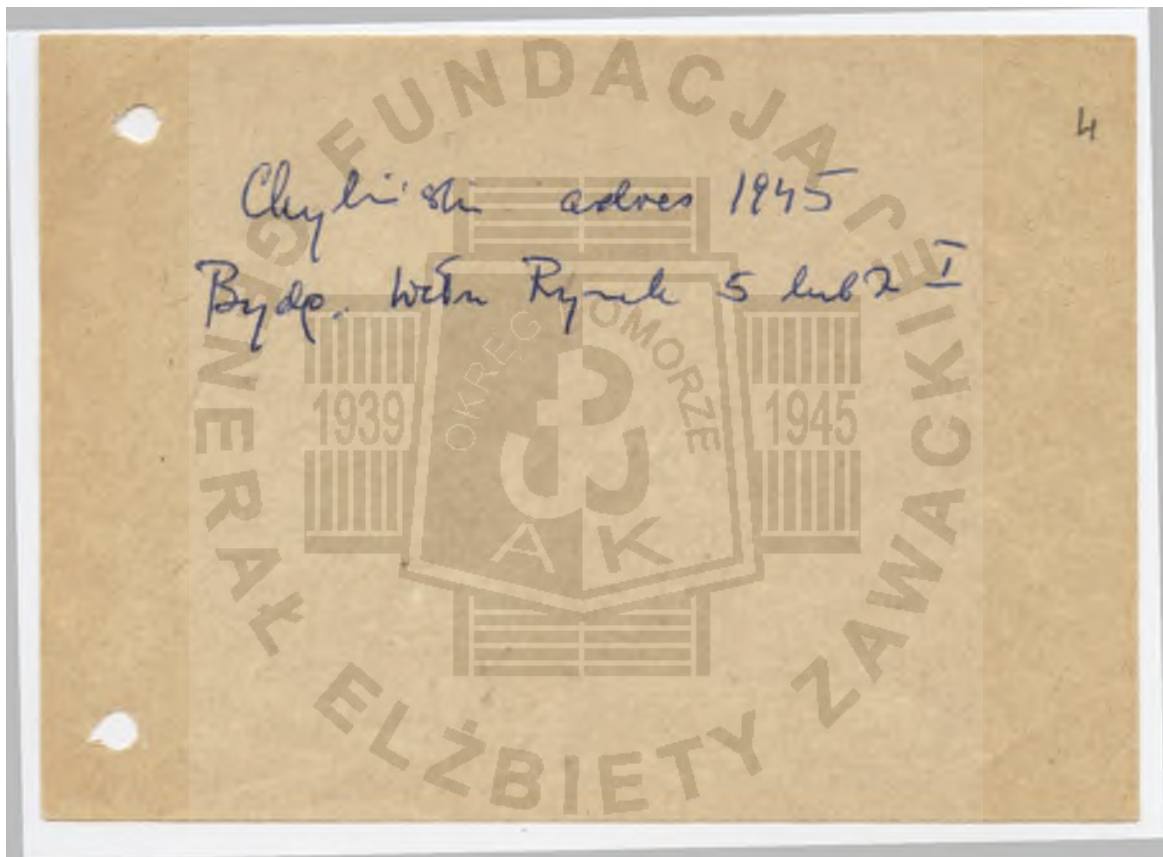 4
Chyliński adres 1945
Bydg. Wełn Rynek 5 lub 7 I
FUNDACJA GENERAŁ ELŻBIETY ZAWACKIEJ
OKRĘG POMORZE
1939 1945
AK